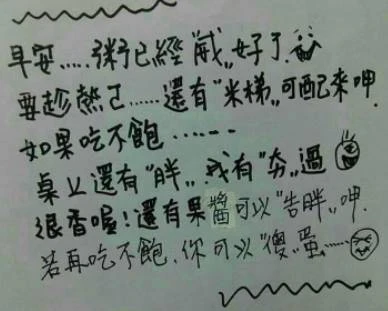 早安.....粥已經"",,好了.
要趁熱ㄛ......還有"米梯",,可配來呷.
如果吃不飽......
桌上還有"胖",,我有"夯",,過
很香喔!還有果醬可以"告胖",,呷.
若再吃不飽.你可以"傻",,蛋.....